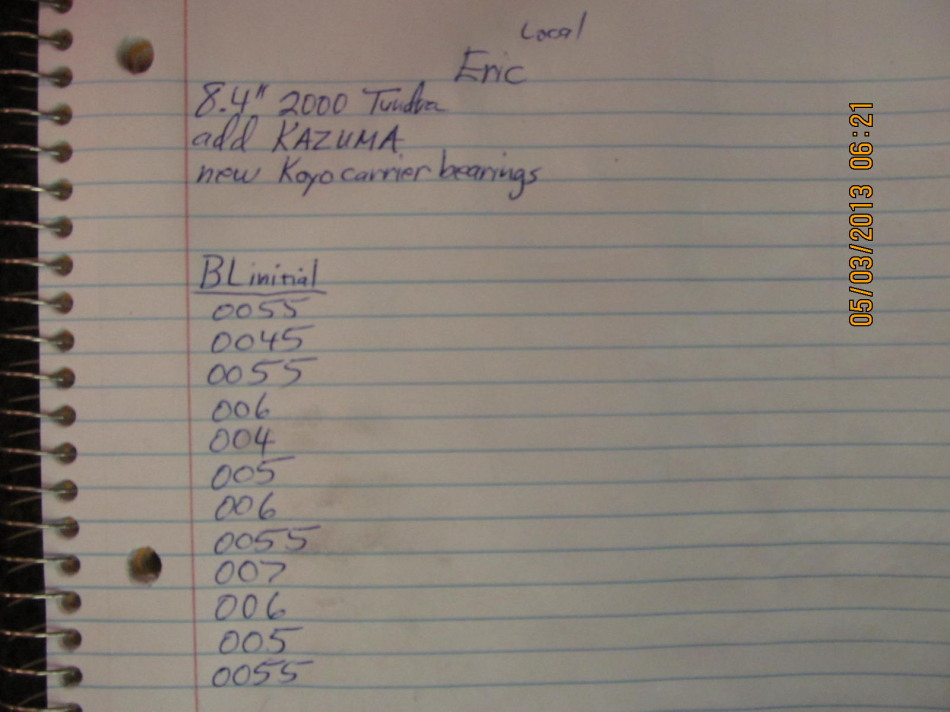 Local
Eric
8.4" 2000 Tundra
add KAZUMA
new Koyo carrier bearings
BL initial
0055
0045
0055
006
004
005
006
0055
007
006
005
0055
05/03/2013 06:21